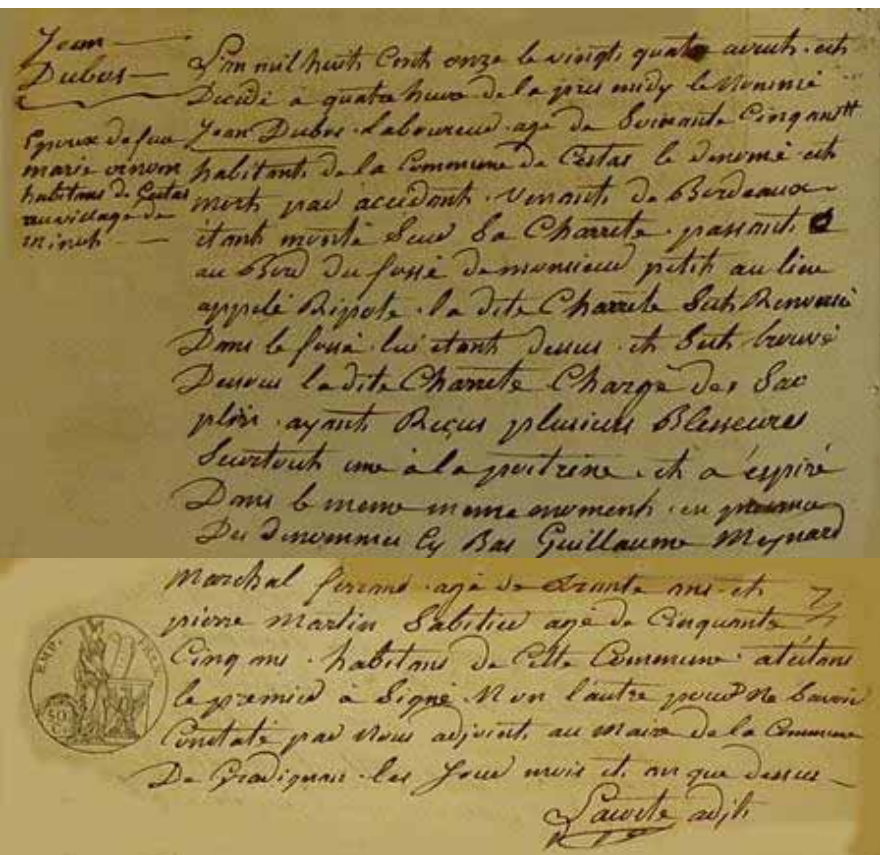 Jean
Dubos
Epoux de feue
marie
habitans de Cestas
au village de
minut
L'an mil huit Cent onze le vingt quatre avrert est
Décédé à quatre heure de la pres midy le Nommé
Jean Dubos laboureur agé de Soixante Cinq ans
habitant de la Commune de Cestas le denomé est
mort par accidant venant de Bordeaux
étant monté Sur Sa Charrete passant
au Bord du fossé de monsieur petit au lieu
appelé Ripote la dite Charrete Sest Renversé
Dans le fossé lui etant dessus et Sest trouvé
Dessous la dite Charrete Chargé des Sac
plein ayant Reçus plusieurs Blesseures
Seurtout une à la poitrine et a éspiré
Dans le meme meme moment en presence
Des denommes Cy Bas Guillaume Meynard
Marchal ferrant agé de Trante ans et
pierre Martin Sabitier agé de Cinquante
Cinq ans habitans de Cette Commune
le premier à Signé Non l'autre pour Ne Savoir
Constaté par Nous adjoint au maire de la Commune
De Gradignan les Jour mois et an que dessus
adjt
EMP. FRAN.
50